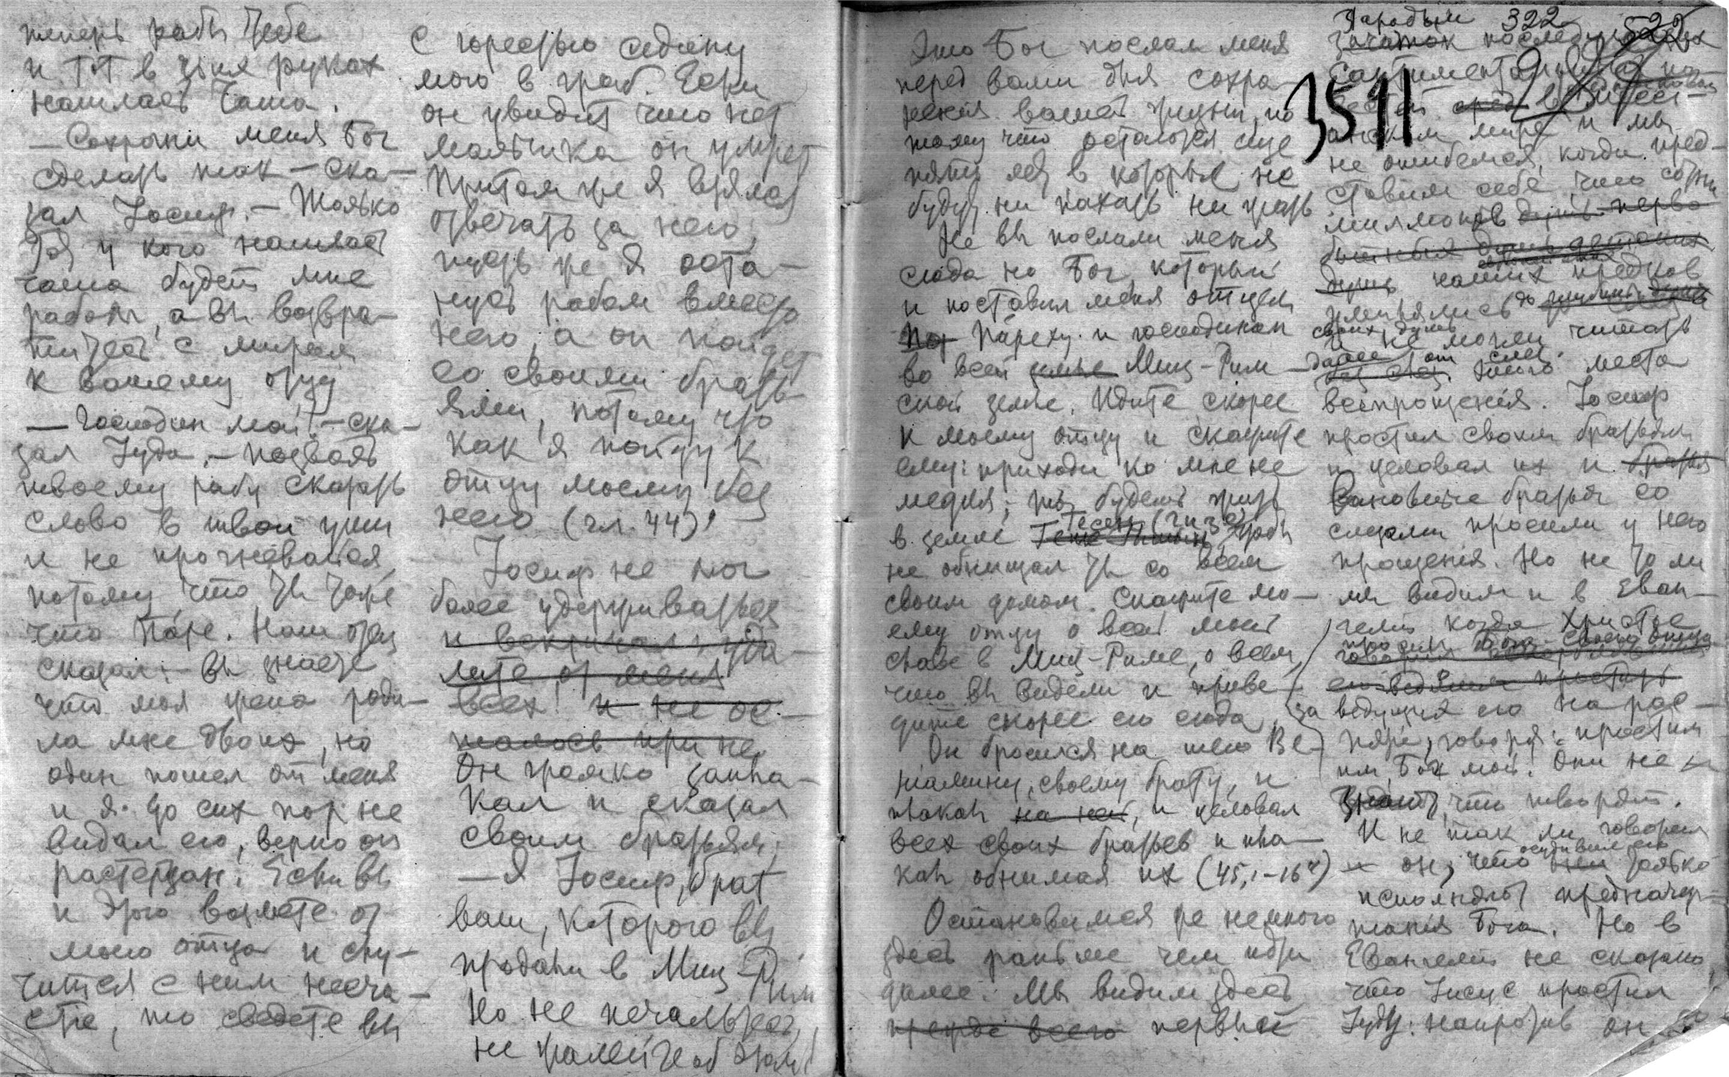 теперь рабы тебе
и тот в чьих руках
нашлась чаша.
— Сохрани меня Бог
сделать так — ска-
зал Іосиф. — Только
тот у кого нашлась
чаша будет мне
рабом, а вы возвра-
титесь с миром
к вашему отцу
— Господин мой! — ска-
зал Іуда, — позволь
твоему рабу сказать
слово в твои уши
и не прогневайся,
потому что ты тоже
что Паре. Наш отец
сказал: — вы знаете
что моя жена роди-
ла мне двоих, но
один пошел от меня
и я до сих пор не
видал его, верно он
растерзан. Если вы
и этого возмете от
моего отца и слу-
чится с ним несча-
стіе, то сведете вы
с горестью седину
мою в гроб. Если
он увидит что нет
мальчика он умрет
Притом же я взялся
отвечать за него,
пусть же я оста-
нусь рабом вместо
него, а он пойдет
со своими брать-
ями, потому что
как я пойду к
отцу моему без
него (гл. 44)!
Іосиф не мог
более удерживаться
и вскричал: уда-
лите от меня
всех! и не ос-
талось при нем
Он громко запла-
кал и сказал
своим братьям:
— Я Іосиф, брат
ваш, которого вы
продали в Миц-Рим
Но не печальтесь,
не жалейте об этом!
Это Бог послал меня
перед вами для сохра-
ненія вашей жизни, по
тому что остается еще
пять лет в которые не
будут ни пахать ни жать
Не вы послали меня
сюда но Бог, который
и поставил меня отцем
Пареху и господином
во всей земле Миц-Рим-
ской земле. Идите скорее
к моему отцу и скажите
ему: приходи ко мне не
медля; ты будешь жить
в земле Гесем (Гизе), чтоб
не обнищал ты со всем
своим домом. Скажите мо-
ему отцу о всей моей
славе в Миц-Риме, о всем
что вы видели и приве-
дите скорее его сюда.
Он бросился на шею Ве-
ніамину, своему брату, и
плакал на ней, и целовал
всех своих братьев и пла-
кал обнимая их (45,1–16)
Остановимся же немного
здесь раньше чем идти
далее. Мы видим здесь
прежде всего первый
Зародыш 322
зачаток последующих
3511
мире и мы
не ошибемся, когда пред-
ставим себе, что сотни
милліонов душ перво
душ наших предков
умилялись до глубины душ
своих душ
и не могли читать
далее от слез этого места
всепрощенія. Іосиф
простил своим братьям
и целовал их и братья
Виновные братья со
слезами просили у него
прощенія. Но не то ли
мы видим и в Еван-
гелии когда Христос
просил Бога своего отца
за ведущих его на рас-
пятіе, говоря: прости
им, Бог мой! Они не
знают, что творят.
И не так ли говорил
он, что осудившие его только
исполняют предначер-
танія Бога. Но в
Евангеліи не сказано,
что Іисус простил
Іуду: напротив он